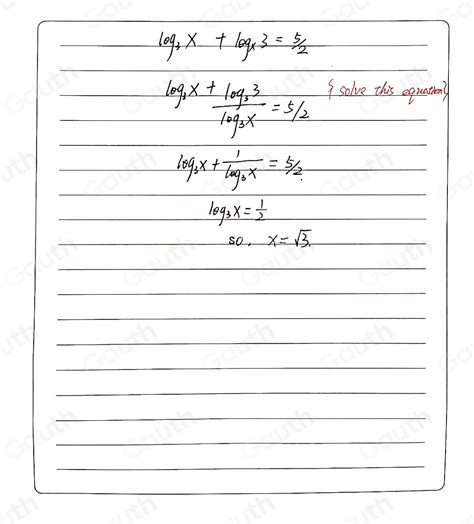 log₃ X + logₓ 3 = 5/2
log₃ X + log₃ 3 / log₃ X = 5/2 { solve this equation }
log₃ X + 1 / log₃ X = 5/2.
log₃ X = 1/2
so, x = √3.